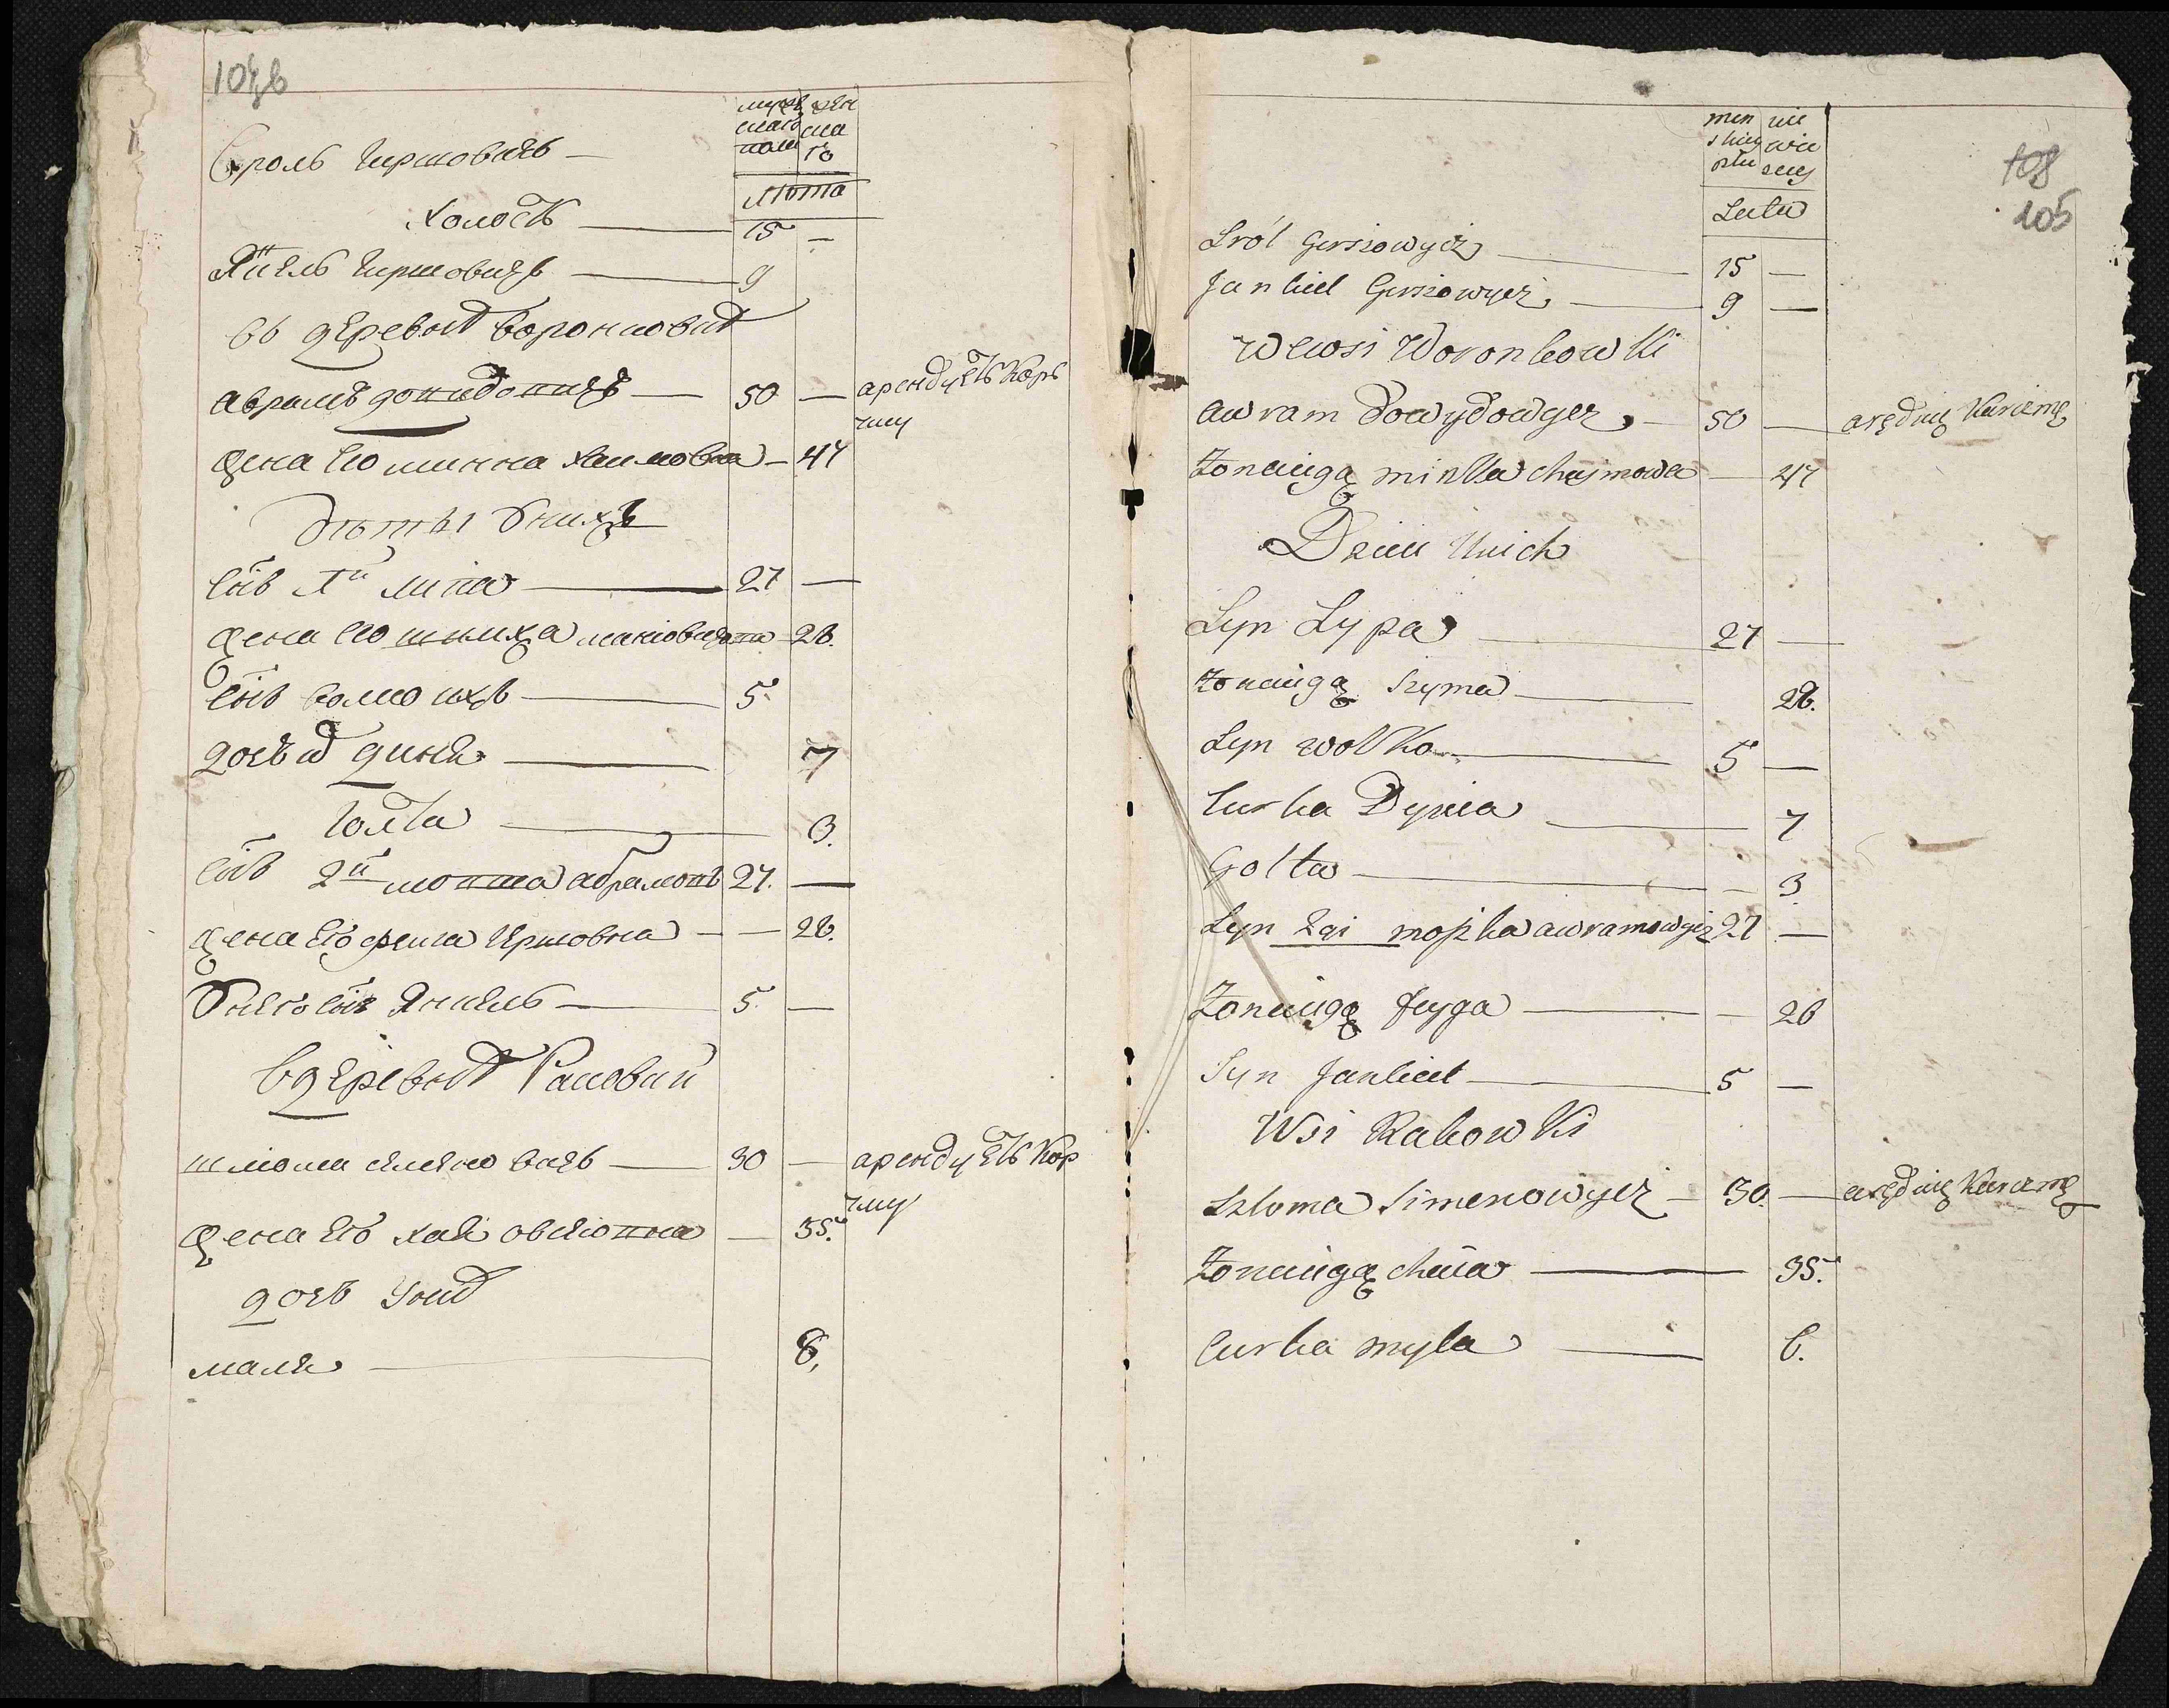 104в
мужеска полу
женскаго
лѣта
Сроль гиршовичъ —
холостъ — 15 —
Янкель гиршовичъ — 9
въ деревнѣ воронковкѣ
аврамъ довидовичъ — 50 — арендуетъ корчму
жена его минка хаимовна — 47
дѣти у нихъ
сынъ 1й липа — 27 —
жена его 28.
сынъ 5.
дочь динѧ — 7
голта — 3.
сынъ 2й мошка абрамовъ 27. —
жена его фейга гершовна — — 28.
у него сынъ Янкель — 5. —
в деревнѣ Раковки
шліома сименовичъ — 30 — арендуетъ корчму
жена его хаѧ — 35.
дочь у нихъ
малѧ — 8,
108
105
męskiey płci
niewieściey
Lata
Sról Gerszowycz — 15 —
Jankiel Gerszowycz — 9 —
W wsi Woronkowki
awram dowydowycz — 50 — aręduię karczmę
Żona iego minka chaymowa — 47
Dzieci u nich
Syn Lypa — 27 —
Żona iego Szyma — 28.
Syn wolko — 5 —
Curka Dynia — 7
Golta — — 3
Syn 2gi moszka awramowycz 27 —
Żona iego feyga — — 28
Syn Jankiel — 5 —
Wsi Rakowki
Szloma Simenowycz — 30. — aręduię karczmę
Żona iego chaia — 35.
Curka myla — 8.